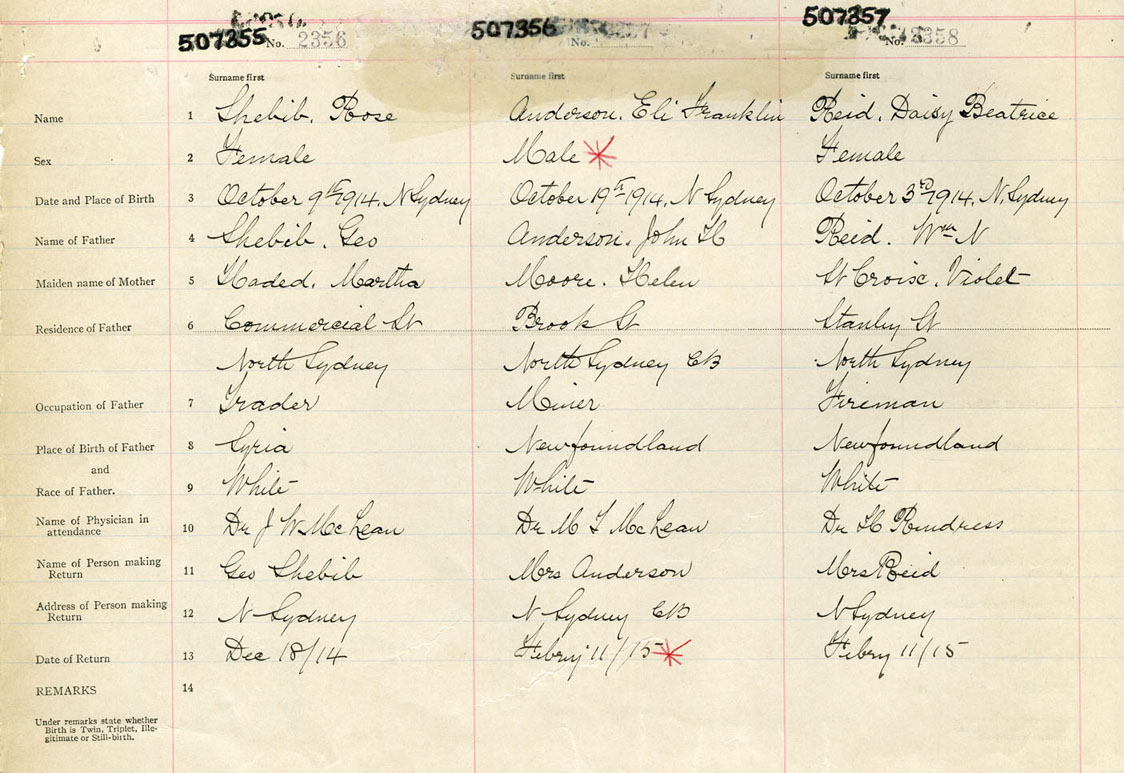 507355 No. 2356 507356 No. 507357 No. 2358
Surname first Surname first Surname first
Name 1 Shebib, Rose Anderson, Eli Franklin Reid, Daisy Beatrice
Sex 2 Female Male Female
Date and Place of Birth 3 October 9th 1914, N Sydney October 19th 1914, N Sydney October 3rd 1914, N, Sydney
Name of Father 4 Shebib, Geo Anderson, John H Reid, Wm N
Maiden name of Mother 5 Haded, Martha Moore, Helen St Croise, Violet
Residence of Father 6 Commercial St Brook St Stanley St
North Sydney North Sydney CB North Sydney
Occupation of Father 7 Trader Miner Fireman
Place of Birth of Father 8 Syria Newfoundland Newfoundland
and
Race of Father. 9 White White White
Name of Physician in attendance 10 Dr J W McLean Dr M T McLean Dr H Rindress
Name of Person making Return 11 Geo Shebib Mrs Anderson Mrs Reid
Address of Person making Return 12 N Sydney N Sydney CB N Sydney
Date of Return 13 Dec 18/14 Febry 11/15 Febry 11/15
REMARKS 14
Under remarks state whether
Birth is Twin, Triplet, Ille-
gitimate or Still-birth.